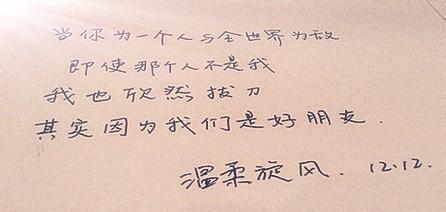 当你为一个人与全世界为敌
即使那个人不是我
我也欣然拔刀
其实因为我们是好朋友.
温柔旋风. 12.12.